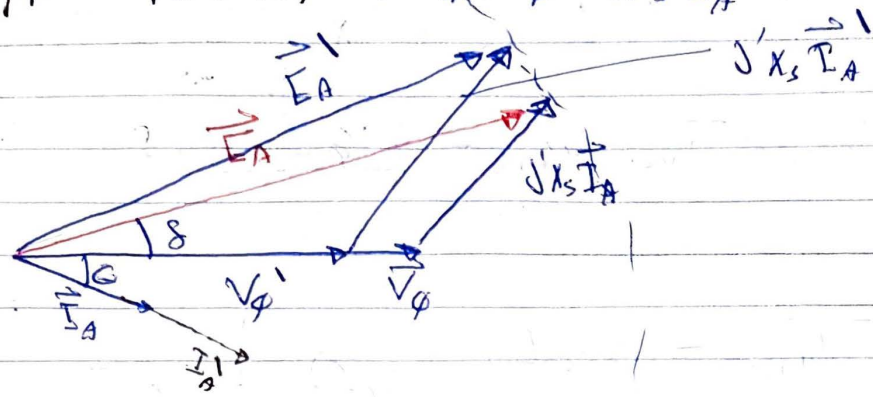 E⃗_A'
jX_s I⃗_A'
E⃗_A
jX_s I⃗_A
δ
θ
V_φ'
V⃗_φ
I⃗_A
I_A'